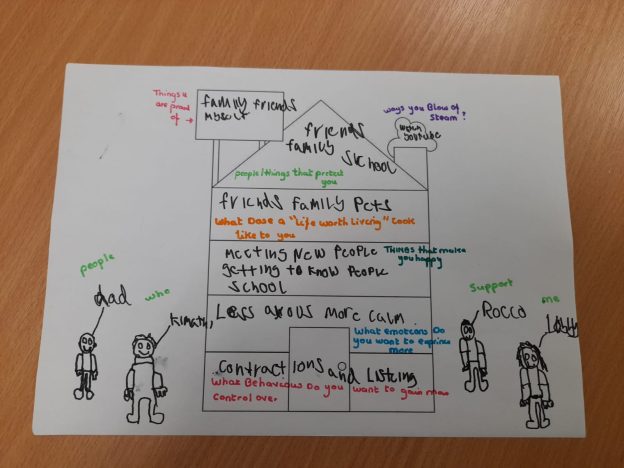 Things u
are proud
of →
family friends
myself
ways you Blow of
Steam?
watch
youtube
friends
family
School
people/things that protect
you
friends family Pets
What Dose a "Life worth Liverig" Look
like to you
Meeting New People
getting to know people
School
THings that make
you happy
Less axous More calm
What emotions Do
you want to exprince
more
Contractions and Listing
What Behavious Do you want to gain more
control over.
people
who
support
me
dad
Rocco